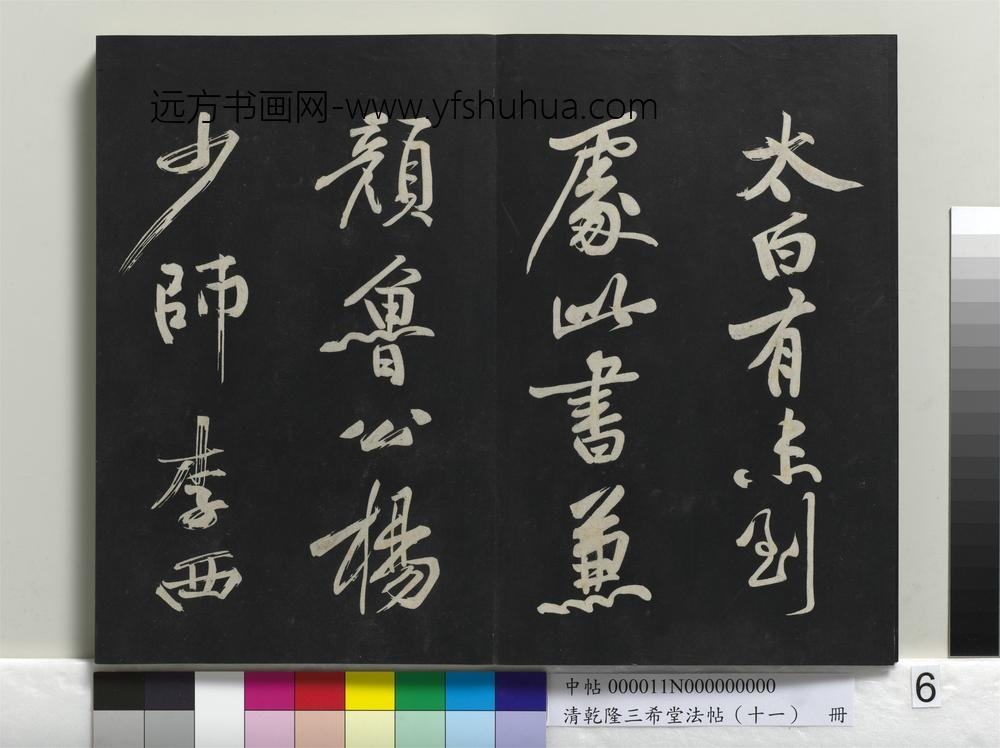 远方书画网-www.yfshuhua.com
太白有未到
處此書兼
顏魯公楊
少師李西
中帖 000011N000000000
清乾隆三希堂法帖（十一） 冊
6